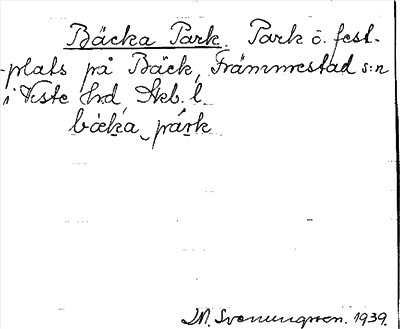 Bäcka Park. Park o. fest-
-plats på Bäck, Främmestad s:n
i Viste hrd, Skb. l.
bäka  park
M. Svenungsson. 1939.